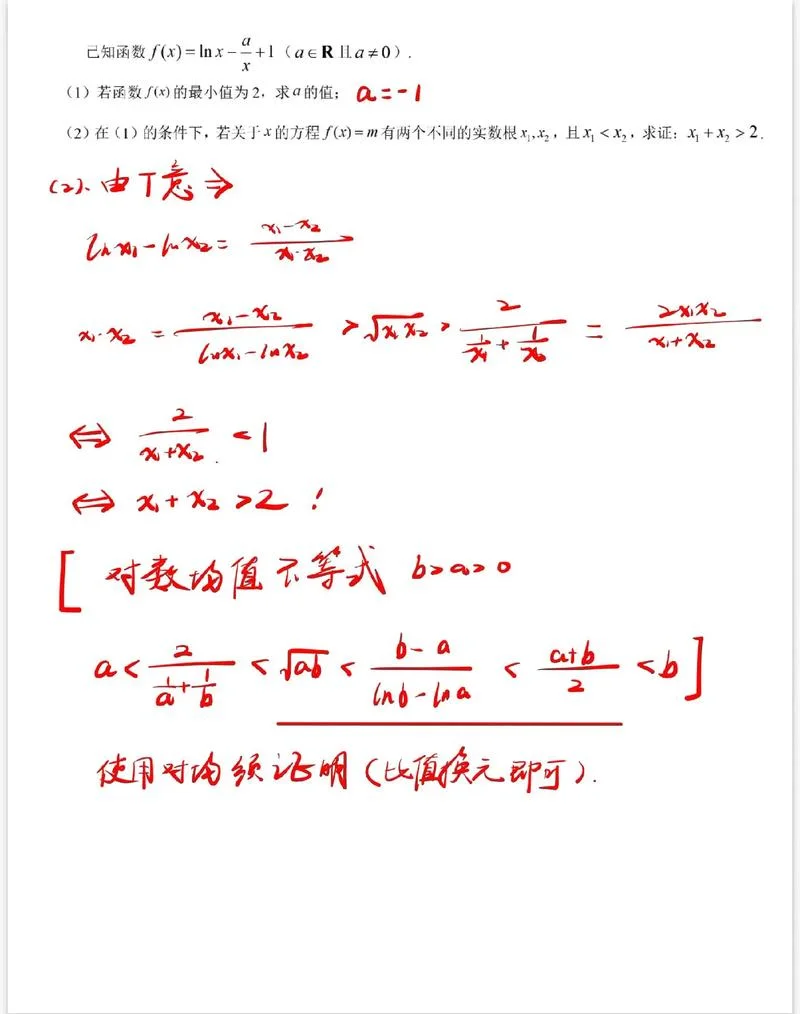 已知函数 f(x) = ln x − a/x + 1 ( a ∈ R 且 a ≠ 0 ) .
(1) 若函数 f(x) 的最小值为 2, 求 a 的值; a = −1
(2) 在 (1) 的条件下, 若关于 x 的方程 f(x) = m 有两个不同的实数根 x₁, x₂ , 且 x₁ < x₂ , 求证: x₁ + x₂ > 2 .
(2). 由T意 ⇒
ln x₁ − ln x₂ = (x₁ − x₂)/(x₁·x₂)
x₁·x₂ = (x₁ − x₂)/(ln x₁ − ln x₂) > √(x₁x₂) > 2/(1/x₁ + 1/x₂) = 2x₁x₂/(x₁ + x₂)
⇔ 2/(x₁ + x₂) < 1
⇔ x₁ + x₂ > 2 !
[ 对数均值不等式 b > a > 0
a < 2/(1/a + 1/b) < √ab < (b − a)/(ln b − ln a) < (a + b)/2 < b ]
使用对均须证明 (比值换元即可).